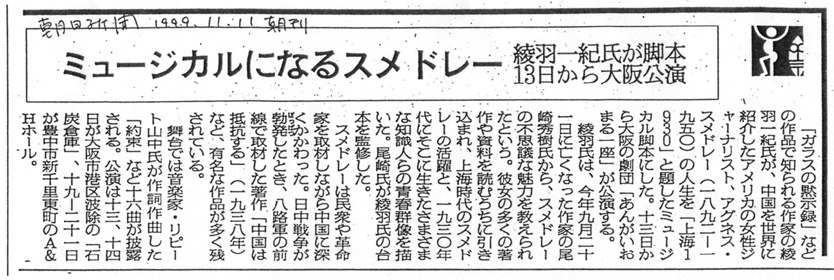 朝日新聞 1999.11.11 朝刊
ミュージカルになるスメドレー
綾羽一紀氏が脚本
13日から大阪公演
「ガラスの黙示録」など
の作品で知られる作家の綾
羽一紀氏が、中国を世界に
紹介したアメリカの女性ジ
ャーナリスト、アグネス・
スメドレー（一八九二―一
九五〇）の人生を「上海１
９３０」と題したミュージ
カル脚本にした。十三日か
ら大阪の劇団「あんがいお
まる一座」が公演する。
綾羽氏は、今年九月二十
一日に亡くなった作家の尾
崎秀樹氏から、スメドレー
の不思議な魅力を教えられ
たという。彼女の多くの著
作や資料を読むうちに引き
込まれ、上海時代のスメド
レーの活躍と、一九三〇年
代にそこに生きたさまざま
な知識人らの青春群像を描
いた。尾崎氏が綾羽氏の台
本を監修した。
スメドレーは民衆や革命
家を取材しながら中国に深
くかかわった。日中戦争が
勃発したとき、八路軍の前
線で取材した著作「中国は
抵抗する」（一九三八年）
など、有名な作品が多く残
されている。
舞台では音楽家・リピー
ト山中氏が作詞作曲した
「約束」など十六曲が披露
される。公演は十三、十四
日が大阪市港区波除の「石
炭倉庫」、十九―二十一日
が豊中市新千里東町のＡ＆
Ｈホール。